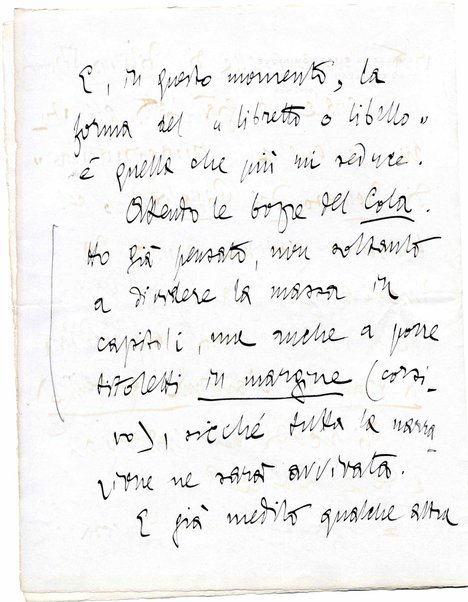 E, in questo momento, la
forma del « libretto o libello »
è quella che più mi seduce.
Attendo le bozze del Cola.
Ho già pensato, non soltanto
a dividere la massa in
capitoli, ma anche a porre
titoletti in margine (corsi-
vo), sicché tutta la narra
zione ne sarà avvivata.
E già medito qualche altra